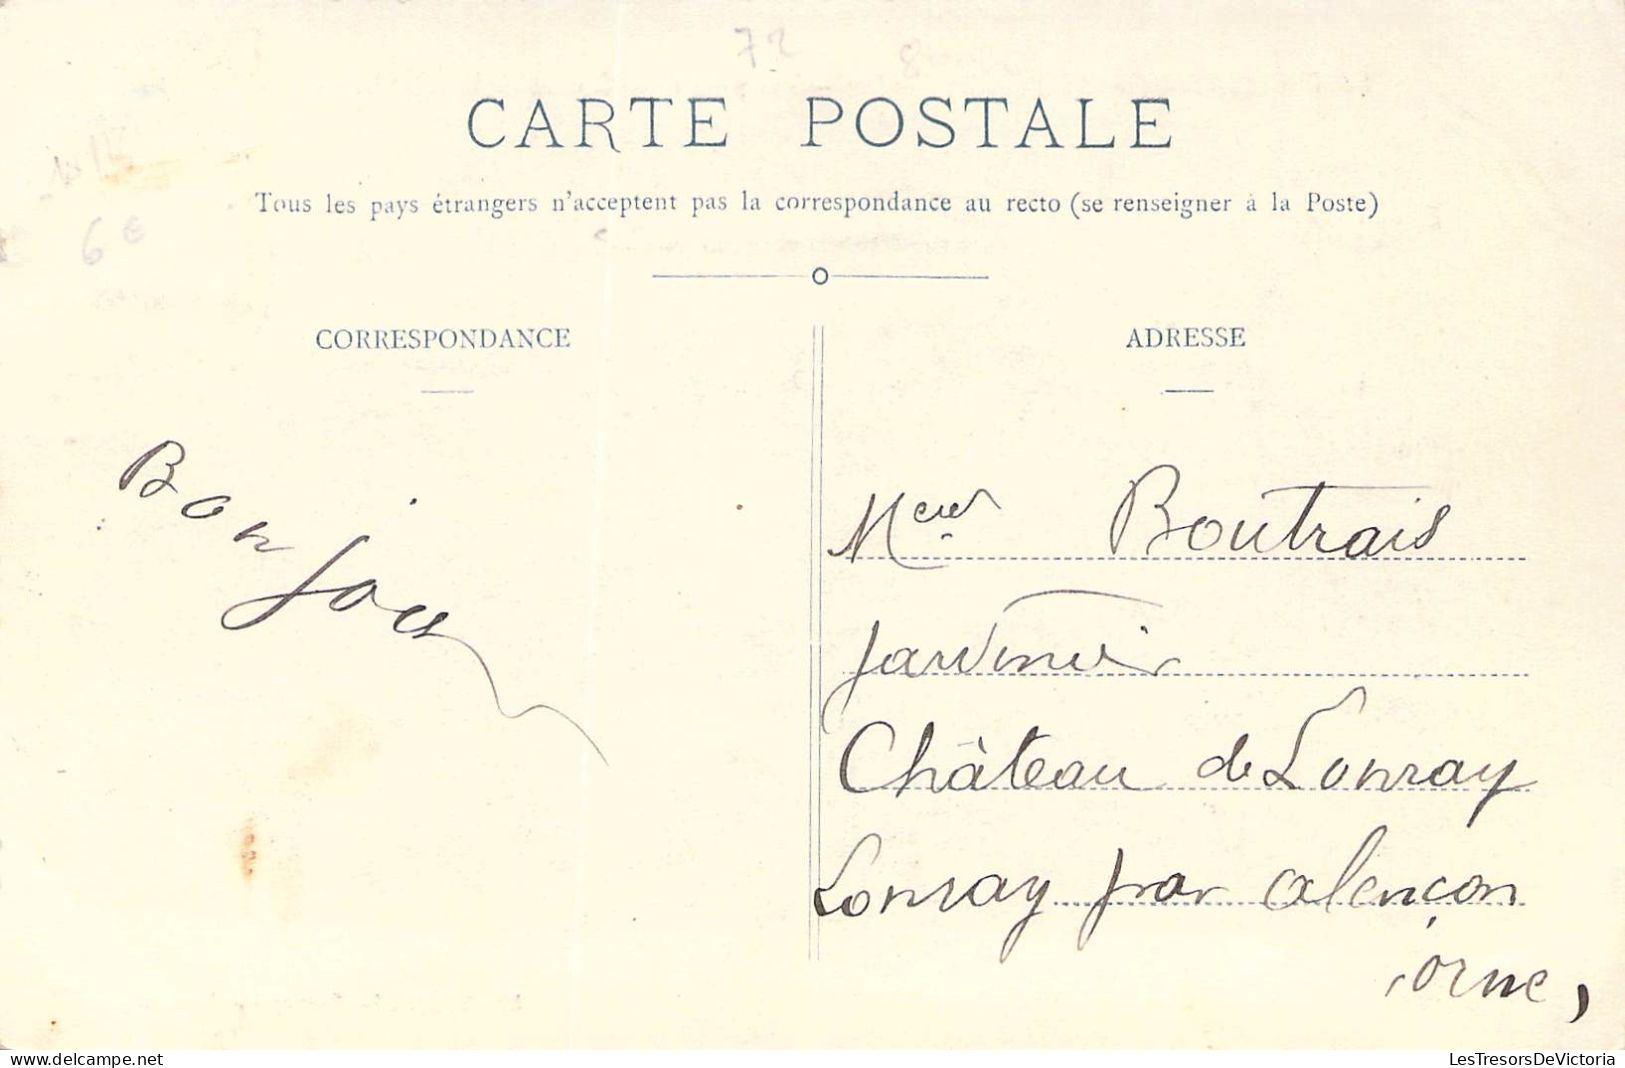 72
CARTE POSTALE
Tous les pays étrangers n'acceptent pas la correspondance au recto (se renseigner à la Poste)
6€
CORRESPONDANCE
Bonjour
ADRESSE
Boutrais
Jardinier
Château de Lonray
Lonray par alençon
orne,
delcampe.net
LesTresorsDeVictoria